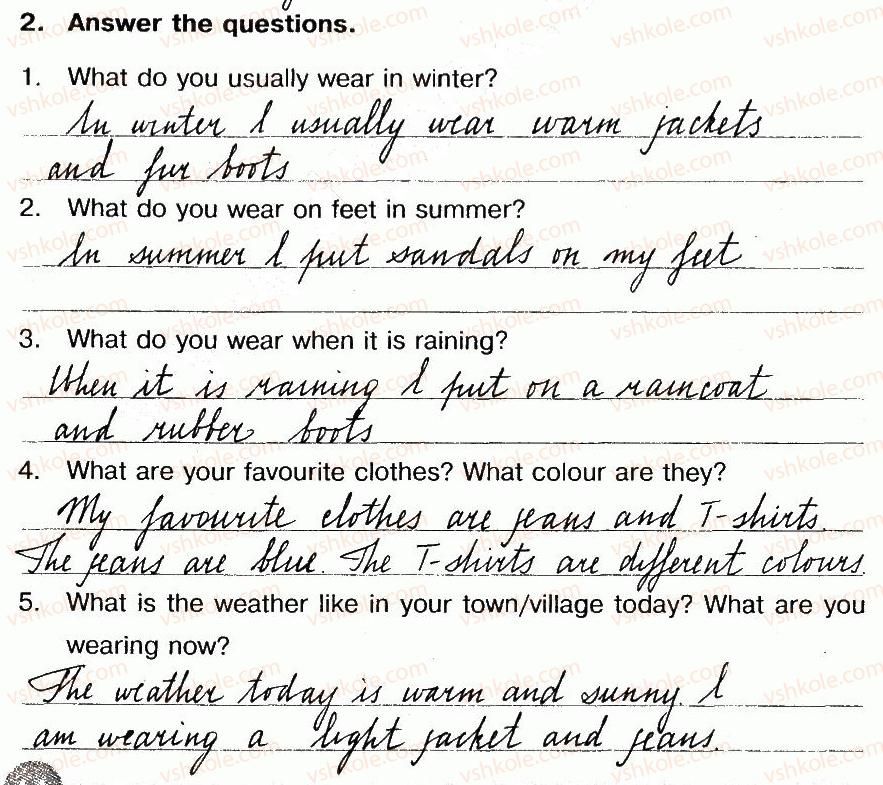 2. Answer the questions.
1. What do you usually wear in winter?
In winter I usually wear warm jackets
and fur boots
2. What do you wear on feet in summer?
In summer I put sandals on my feet
3. What do you wear when it is raining?
When it is raining I put on a raincoat
and rubber boots
4. What are your favourite clothes? What colour are they?
My favourite clothes are jeans and T-shirts
The jeans are blue. The T-shirts are different colours.
5. What is the weather like in your town/village today? What are you
wearing now?
The weather today is warm and sunny. I
am wearing a light jacket and jeans.
vshkole.com